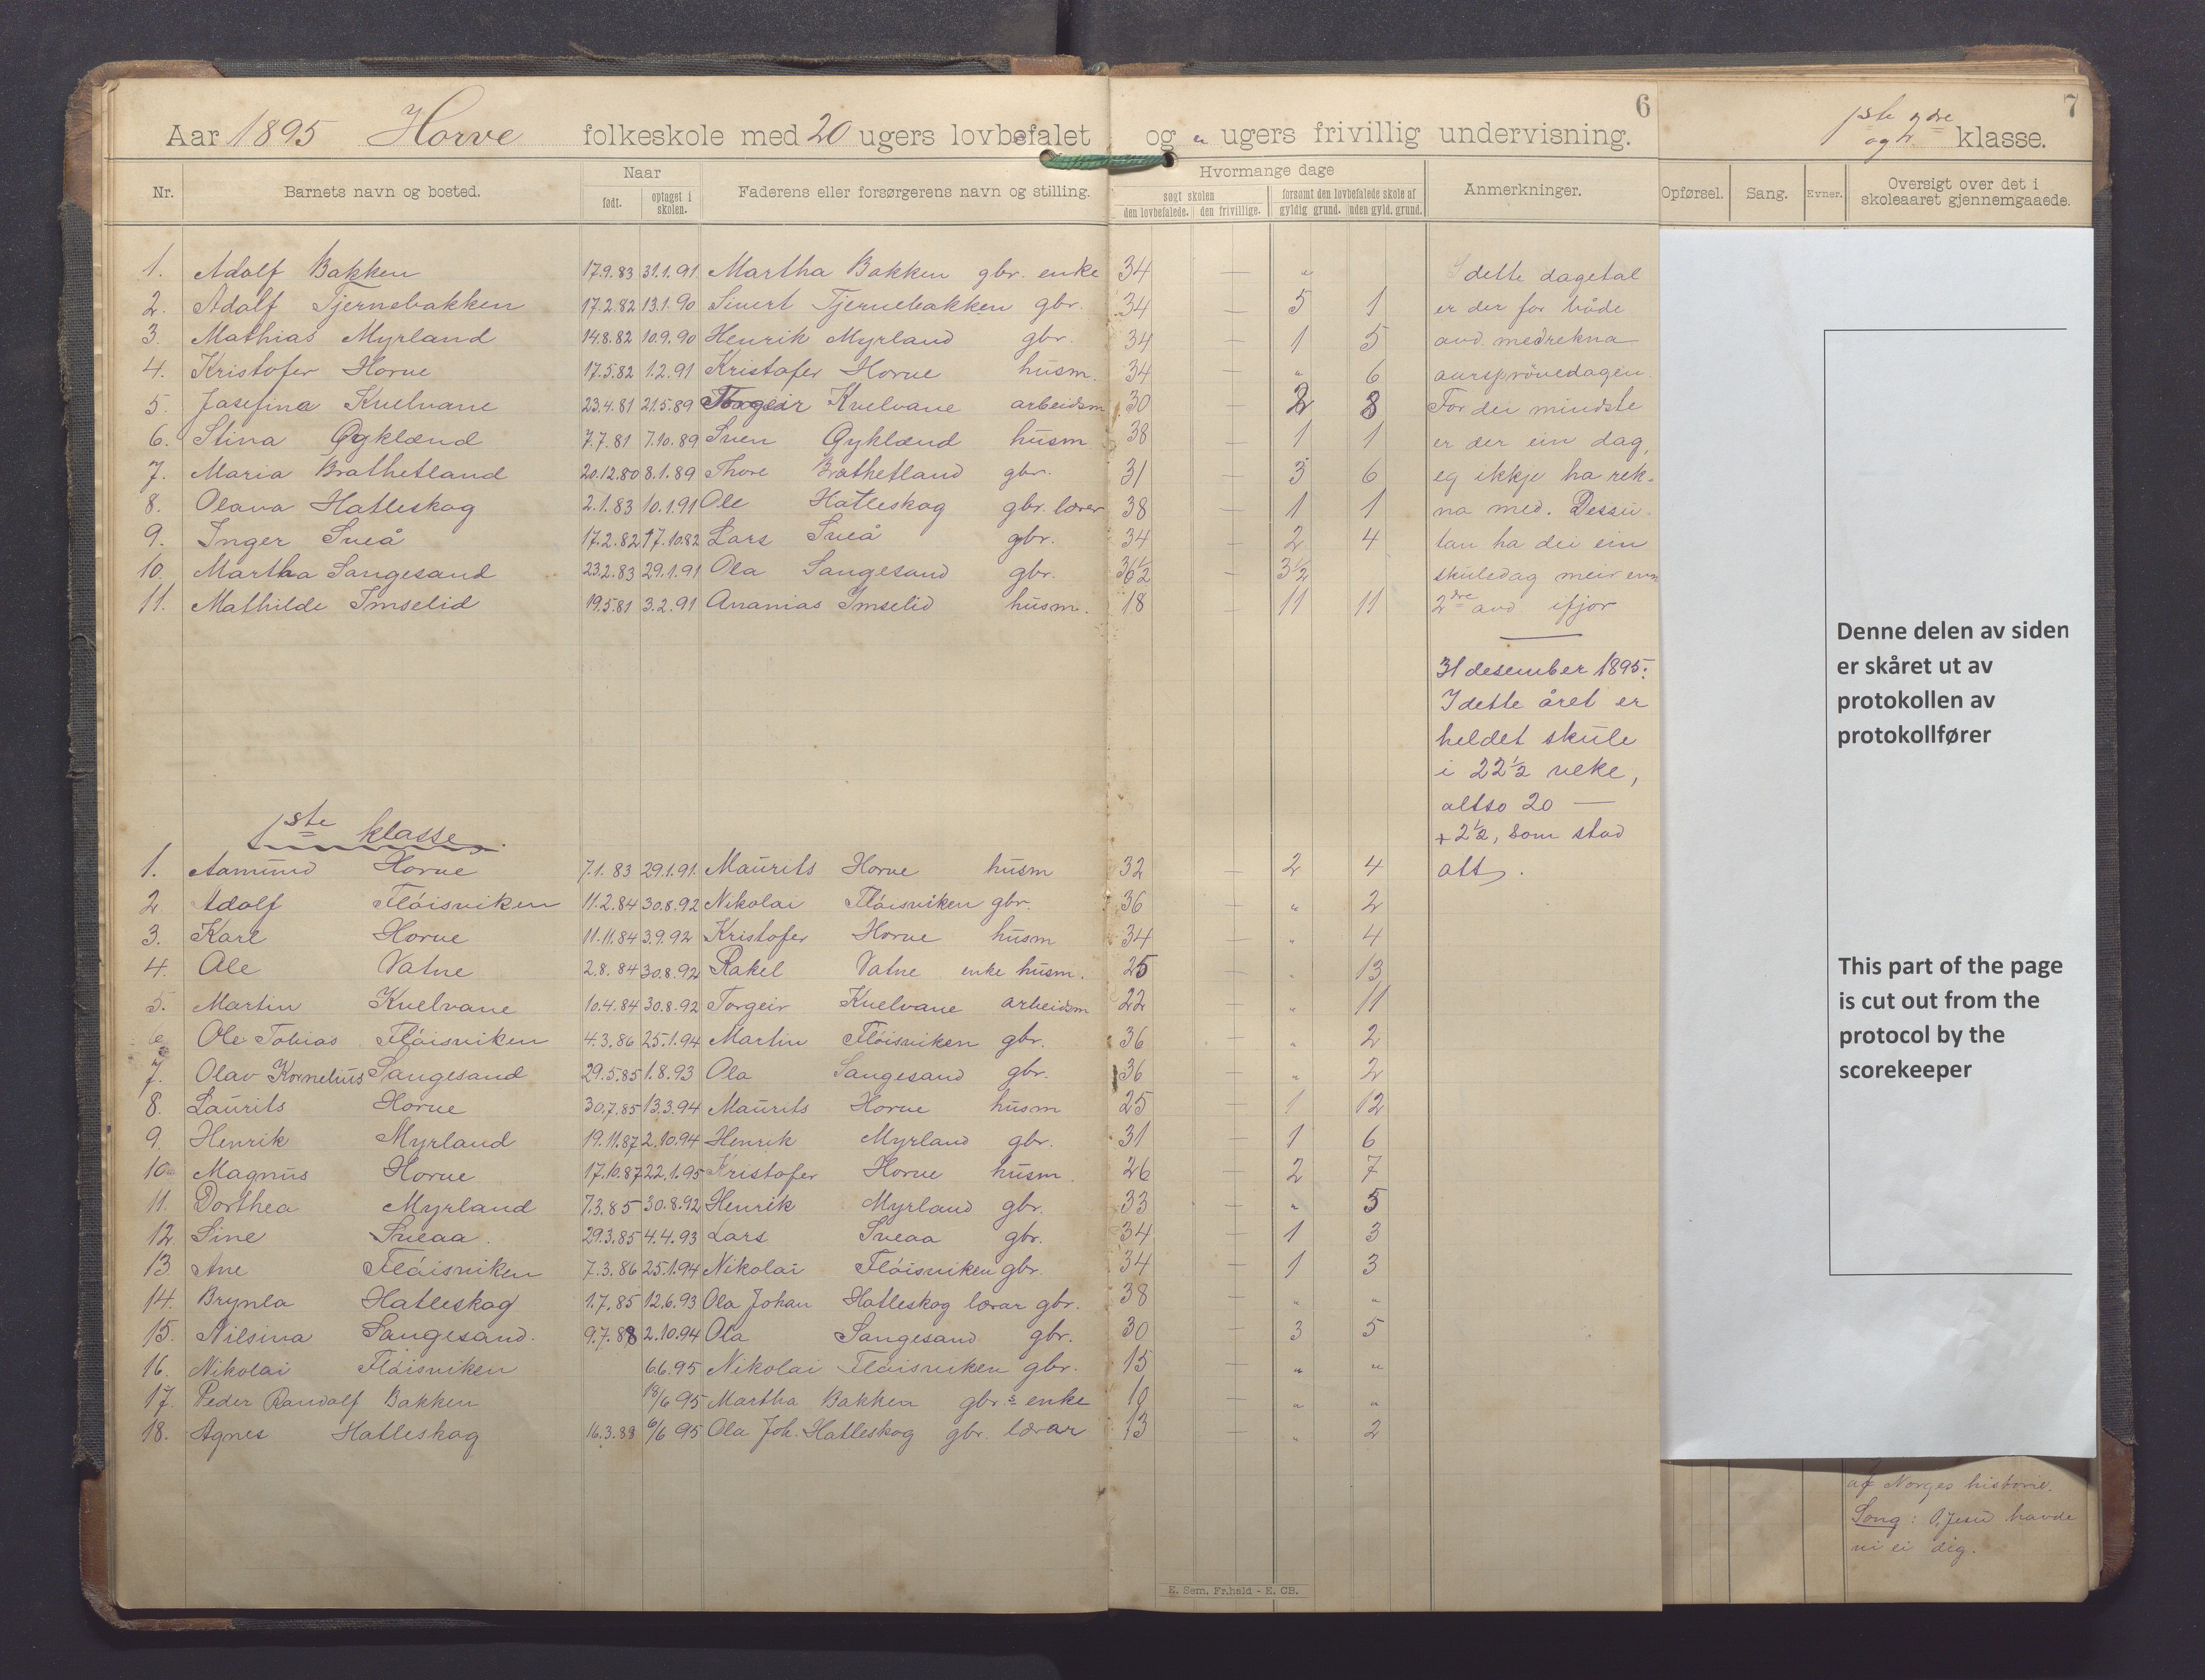 Aar 1895 Horve folkeskole med 20 ugers lovbefalet og " ugers frivillig undervisning. 6
1ste og 2dre klasse. 7
Nr. Barnets navn og bosted. Naar født. optaget i skolen. Faderens eller forsørgerens navn og stilling. Hvormange dage søgt skolen den lovbefalede. den frivillige. forsømt den lovbefalede skole af gyldig grund. uden gyld. grund. Anmerkninger. Opførsel. Sang. Evner. Oversigt over det i skoleaaret gjennemgaaede.
1. Adolf Bakken 17.9.83 31.1.91 Martha Bakken gbr. enke 34 — " I dette dagetal
2. Adolf Tjernsbakken 17.2.82 13.1.90 Sivert Tjernsbakken gbr. 34 — 5 1 er der for både
3. Mathias Myrland 14.8.82 10.9.90 Henrik Myrland gbr. 34 — 1 5 avd. medrekna
4. Kristofer Horve 17.5.82 1.2.91 Kristofer Horve husm. 34 — " 6 aarsprövedagen.
5. Josefina Kvelvane 23.4.81 21.5.89 Torgeir Kvelvane arbeidsm 30 — 2 8 For dei mindste
6. Stina Øyklænd 7.7.81 7.10.89 Sven Øyklænd husm 38 — 1 1 er der ein dag,
7. Maria Brathetland 20.12.80 8.1.89 Thore Brathetland gbr. 31 — 3 6 eg ikkje ha rek-
8. Olava Hatleskog 2.1.83 10.1.91 Ole Hatleskog gbr. lærer 38 — 1 1 na med. Dessu-
9. Inger Sveå 17.2.82 17.10.82 Lars Sveå gbr. 34 — 2 4 tan ha dei ein
10. Martha Sangesand 23.2.83 29.1.91 Ola Sangesand gbr. 36½ — 3½ skuledag meir enn
11. Mathilde Imselid 19.5.81 3.2.91 Ananias Imselid husm. 18 — 11 11 2dre avd ifjor
31 desember 1895:
I dette året er
heldet skule
i 22½ veke,
altso 20 —
+ 2½, som stod
att.
1ste klasse.
1. Aamund Horve 7.1.83 29.1.91 Maurits Horve husm 32 — 2 4
2. Adolf Flöisviken 11.2.84 30.8.92 Nikolai Flöisviken gbr. 36 — " 2
3. Karl Horve 11.11.84 3.9.92 Kristofer Horve husm 34 — " 4
4. Ole Vatne 2.8.84 30.8.92 Rakel Vatne enke husm. 25 — " 13
5. Martin Kvelvane 10.4.84 30.8.92 Torgeir Kvelvane arbeidsm 22 — " 11
6. Ole Tobias Flöisviken 4.3.86 25.1.94 Martin Flöisviken gbr. 36 — " 2
7. Olav Kornelius Sangesand 29.5.85 1.8.93 Ola Sangesand gbr. 36 — " 2
8. Laurits Horve 30.7.85 13.3.94 Maurits Horve husm 25 — 1 12
9. Henrik Myrland 19.11.87 2.10.94 Henrik Myrland gbr. 31 — 1 6
10. Magnus Horve 17.10.87 22.1.95 Kristofer Horve husm. 26 — 2 7
11. Dorthea Myrland 7.3.85 30.8.92 Henrik Myrland gbr. 33 — " 5
12. Sine Sveaa. 29.3.85 4.4.93 Lars Sveaa gbr. 34 — 1 3
13. Ane Flöisviken 7.3.86 25.1.94 Nikolai Flöisviken gbr. 34 — 1 3
14. Brynla Hatleskog 1.7.85 12.6.93 Ola Johan Hatleskog lærar gbr. 38 — " "
15. Nilsina Sangesand. 9.7.88 2.10.94 Ola Sangesand gbr. 30 — 3 5
16. Nikolai Flöisviken 6.6.95 Nikolai Flöisviken gbr. 15 — " "
17. Peder Randolf Bakken 18/6 95 Martha Bakken gbr.s enke 10 — " "
18. Agnes Hatleskog 16.3.88 6/6 95 Ola Joh. Hatleskog gbr. lærar 13 — " 2
E. Sem, Fr.hald - E. CB.
Denne delen av siden
er skåret ut av
protokollen av
protokollfører
This part of the page
is cut out from the
protocol by the
scorekeeper
af Norges historie.
Song: O, Jesu havde
vi ei dig.